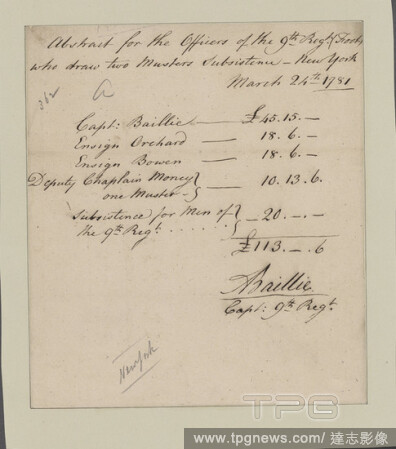 Abstract for the Officers of the 9th Regt (Foot)
who draw two Musters Subsistence – New York
March 24th 1781
362
Capt: Baillie — £45.15.—
Ensign Orchard — 18.6.—
Ensign Bowen — 18.6.—
Deputy Chaplain Money } — 10.13.6.
one Muster –
Subsistence for Men of } – 20.–.–
the 9th Regt. . . . . . .
£113.–.6
ABaillie
Capt: 9th Regt.
New York
TPG
www.tpgnews.com/達志影像